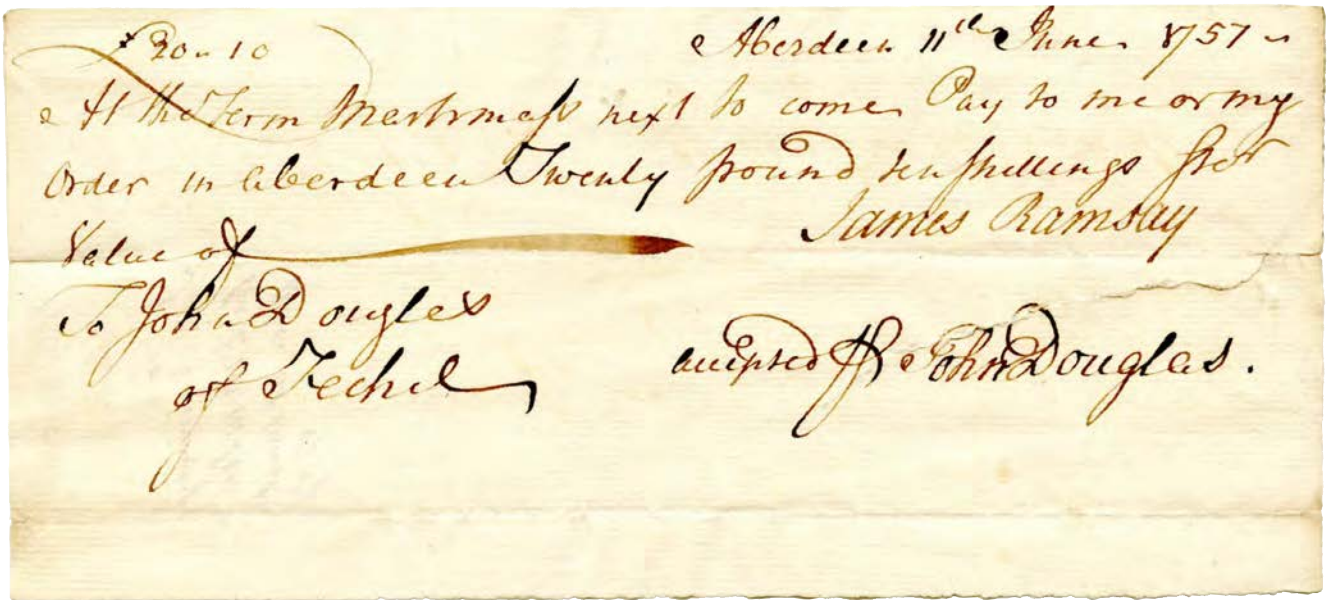 £20 " 10 Aberdeen 11th June 1757
At the Term Martnmass next to come Pay to me or my
Order in Aberdeen Twenty pound ten shillings ster
Value of James Ramsay
To John Douglas
of Fechel accepted John Douglas.